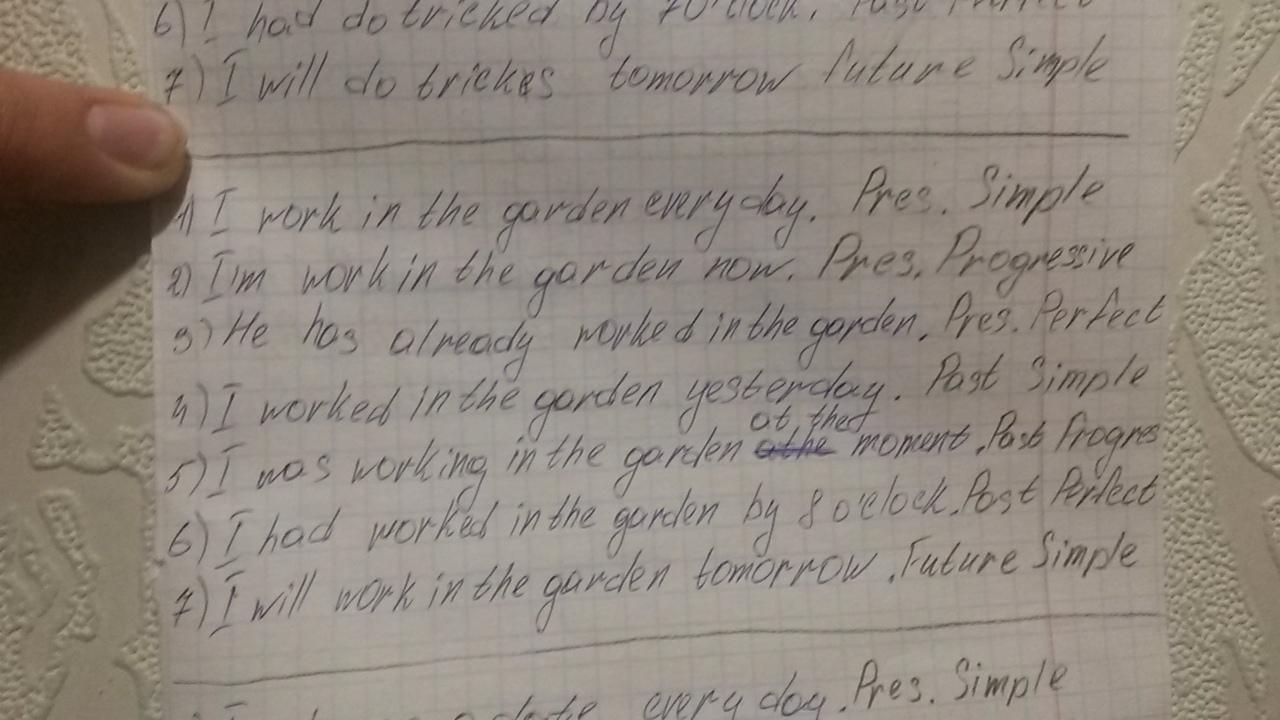 6) I had do tricked by 7 o'clock. Past Perfect
7) I will do trickes tomorrow Future Simple
1) I work in the garden every day. Pres. Simple
2) I'm work in the garden now. Pres. Progressive
3) He has already worked in the garden. Pres. Perfect
4) I worked in the garden yesterday. Past Simple
at
5) I was working in the garden moment. Past Progres
6) I had worked in the garden by 8 o'clock. Past Perfect
7) I will work in the garden tomorrow. Future Simple
every day. Pres. Simple